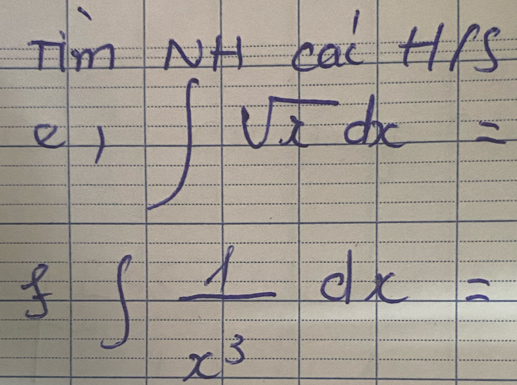 Tìm NH các H/S
e, ∫ √x dx =
f ∫ 1/x³ dx =